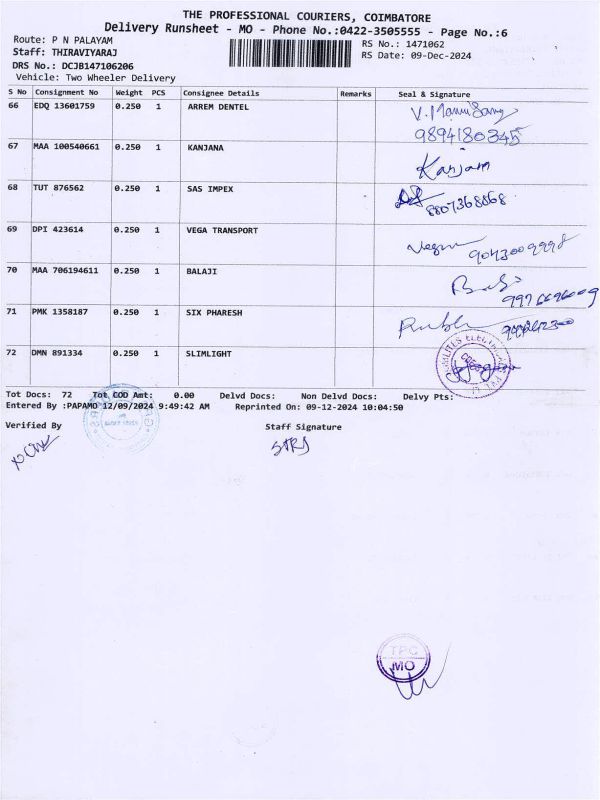 THE PROFESSIONAL COURIERS, COIMBATORE
Delivery Runsheet - MO - Phone No.:0422-3505555 - Page No.:6
Route: P N PALAYAM
RS No.: 1471062
Staff: THIRAVIYARAJ
RS Date: 09-Dec-2024
DRS No.: DCJB147106206
Vehicle: Two Wheeler Delivery
S No Consignment No Weight PCS Consignee Details Remarks Seal & Signature
66 EDQ 13601759 0.250 1 ARREM DENTEL
9894180345
67 MAA 100540661 0.250 1 KANJANA
Kanjana
68 TUT 876562 0.250 1 SAS IMPEX
8807368868
69 DPI 423614 0.250 1 VEGA TRANSPORT
9043009998
70 MAA 706194611 0.250 1 BALAJI
71 PMK 1358187 0.250 1 SIX PHARESH
72 DMN 891334 0.250 1 SLIMLIGHT
Tot Docs: 72 Tot COD Amt: 0.00 Delvd Docs: Non Delvd Docs: Delvy Pts:
Entered By :PAPAMO 12/09/2024 9:49:42 AM Reprinted On: 09-12-2024 10:04:50
Verified By Staff Signature
TPC
MO